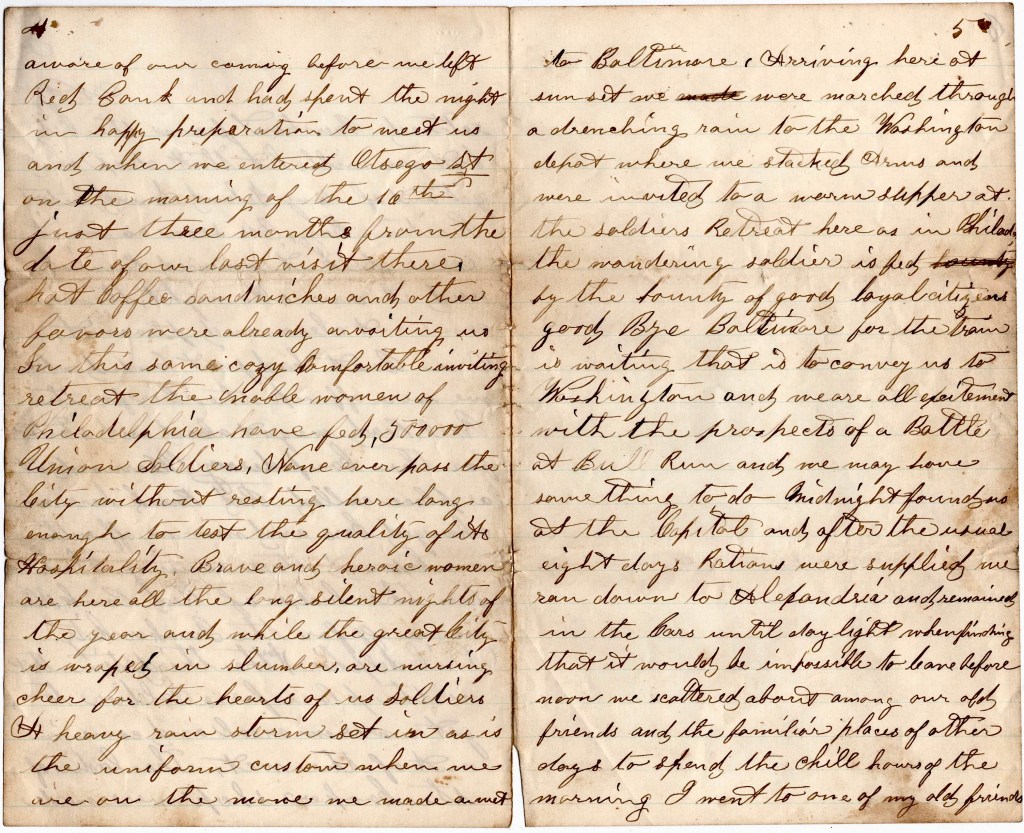 4
aware of our coming before we left
Red Bank and had spent the night
in happy preparation to meet us
and when we entered Otsego St
on the morning of the 16th
just three months from the
date of our last visit there,
hot Coffee sandwiches and other
favors were already awaiting us
In this same cozy Comfortable inviting
retreat the noble women of
Philadelphia have fed, 500000
Union Soldiers, None ever pass the
City without resting here long
enough to test the quality of its
Hospitality. Brave and heroic women
are here all the long silent nights of
the year and while the great City
is wraped in slumber, are nursing
cheer for the hearts of us Soldiers
A heavy rain storm set in as is
the uniform custom when we
are on the move we made a wet
5
to Baltimore, Arriving here at
sun set we made were marched through
a drenching rain to the Washington
depot where we stacked Arms and
were invited to a warm supper at
the soldiers Retreat here as in Philad
the wandering soldier is fed bounty
by the bounty of good loyal citizens
good Bye Baltimore for the train
is waiting that is to convey us to
Washington and we are all excitement
with the prospects of a Battle
at Bull Run and we may have
something to do Midnight found us
at the Capitol and after the usual
eight days Rations were supplied we
ran down to Alexandria and remained
in the Cars until day light when finding
that it would be impossible to leave before
noon we scattered about among our old
friends and the familiar places of other
days to spend the chill hours of the
morning I went to one of my old friends